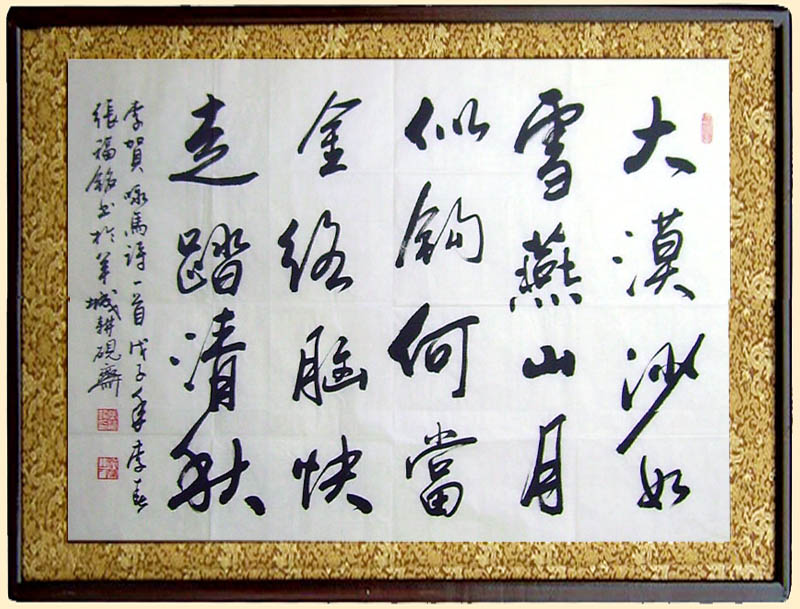 大漠沙如
雪燕山月
似鉤何當
金絡腦快
走踏清秋
李賀咏馬詩一首戊子年季春
張福銘书於羊城耕硯齋